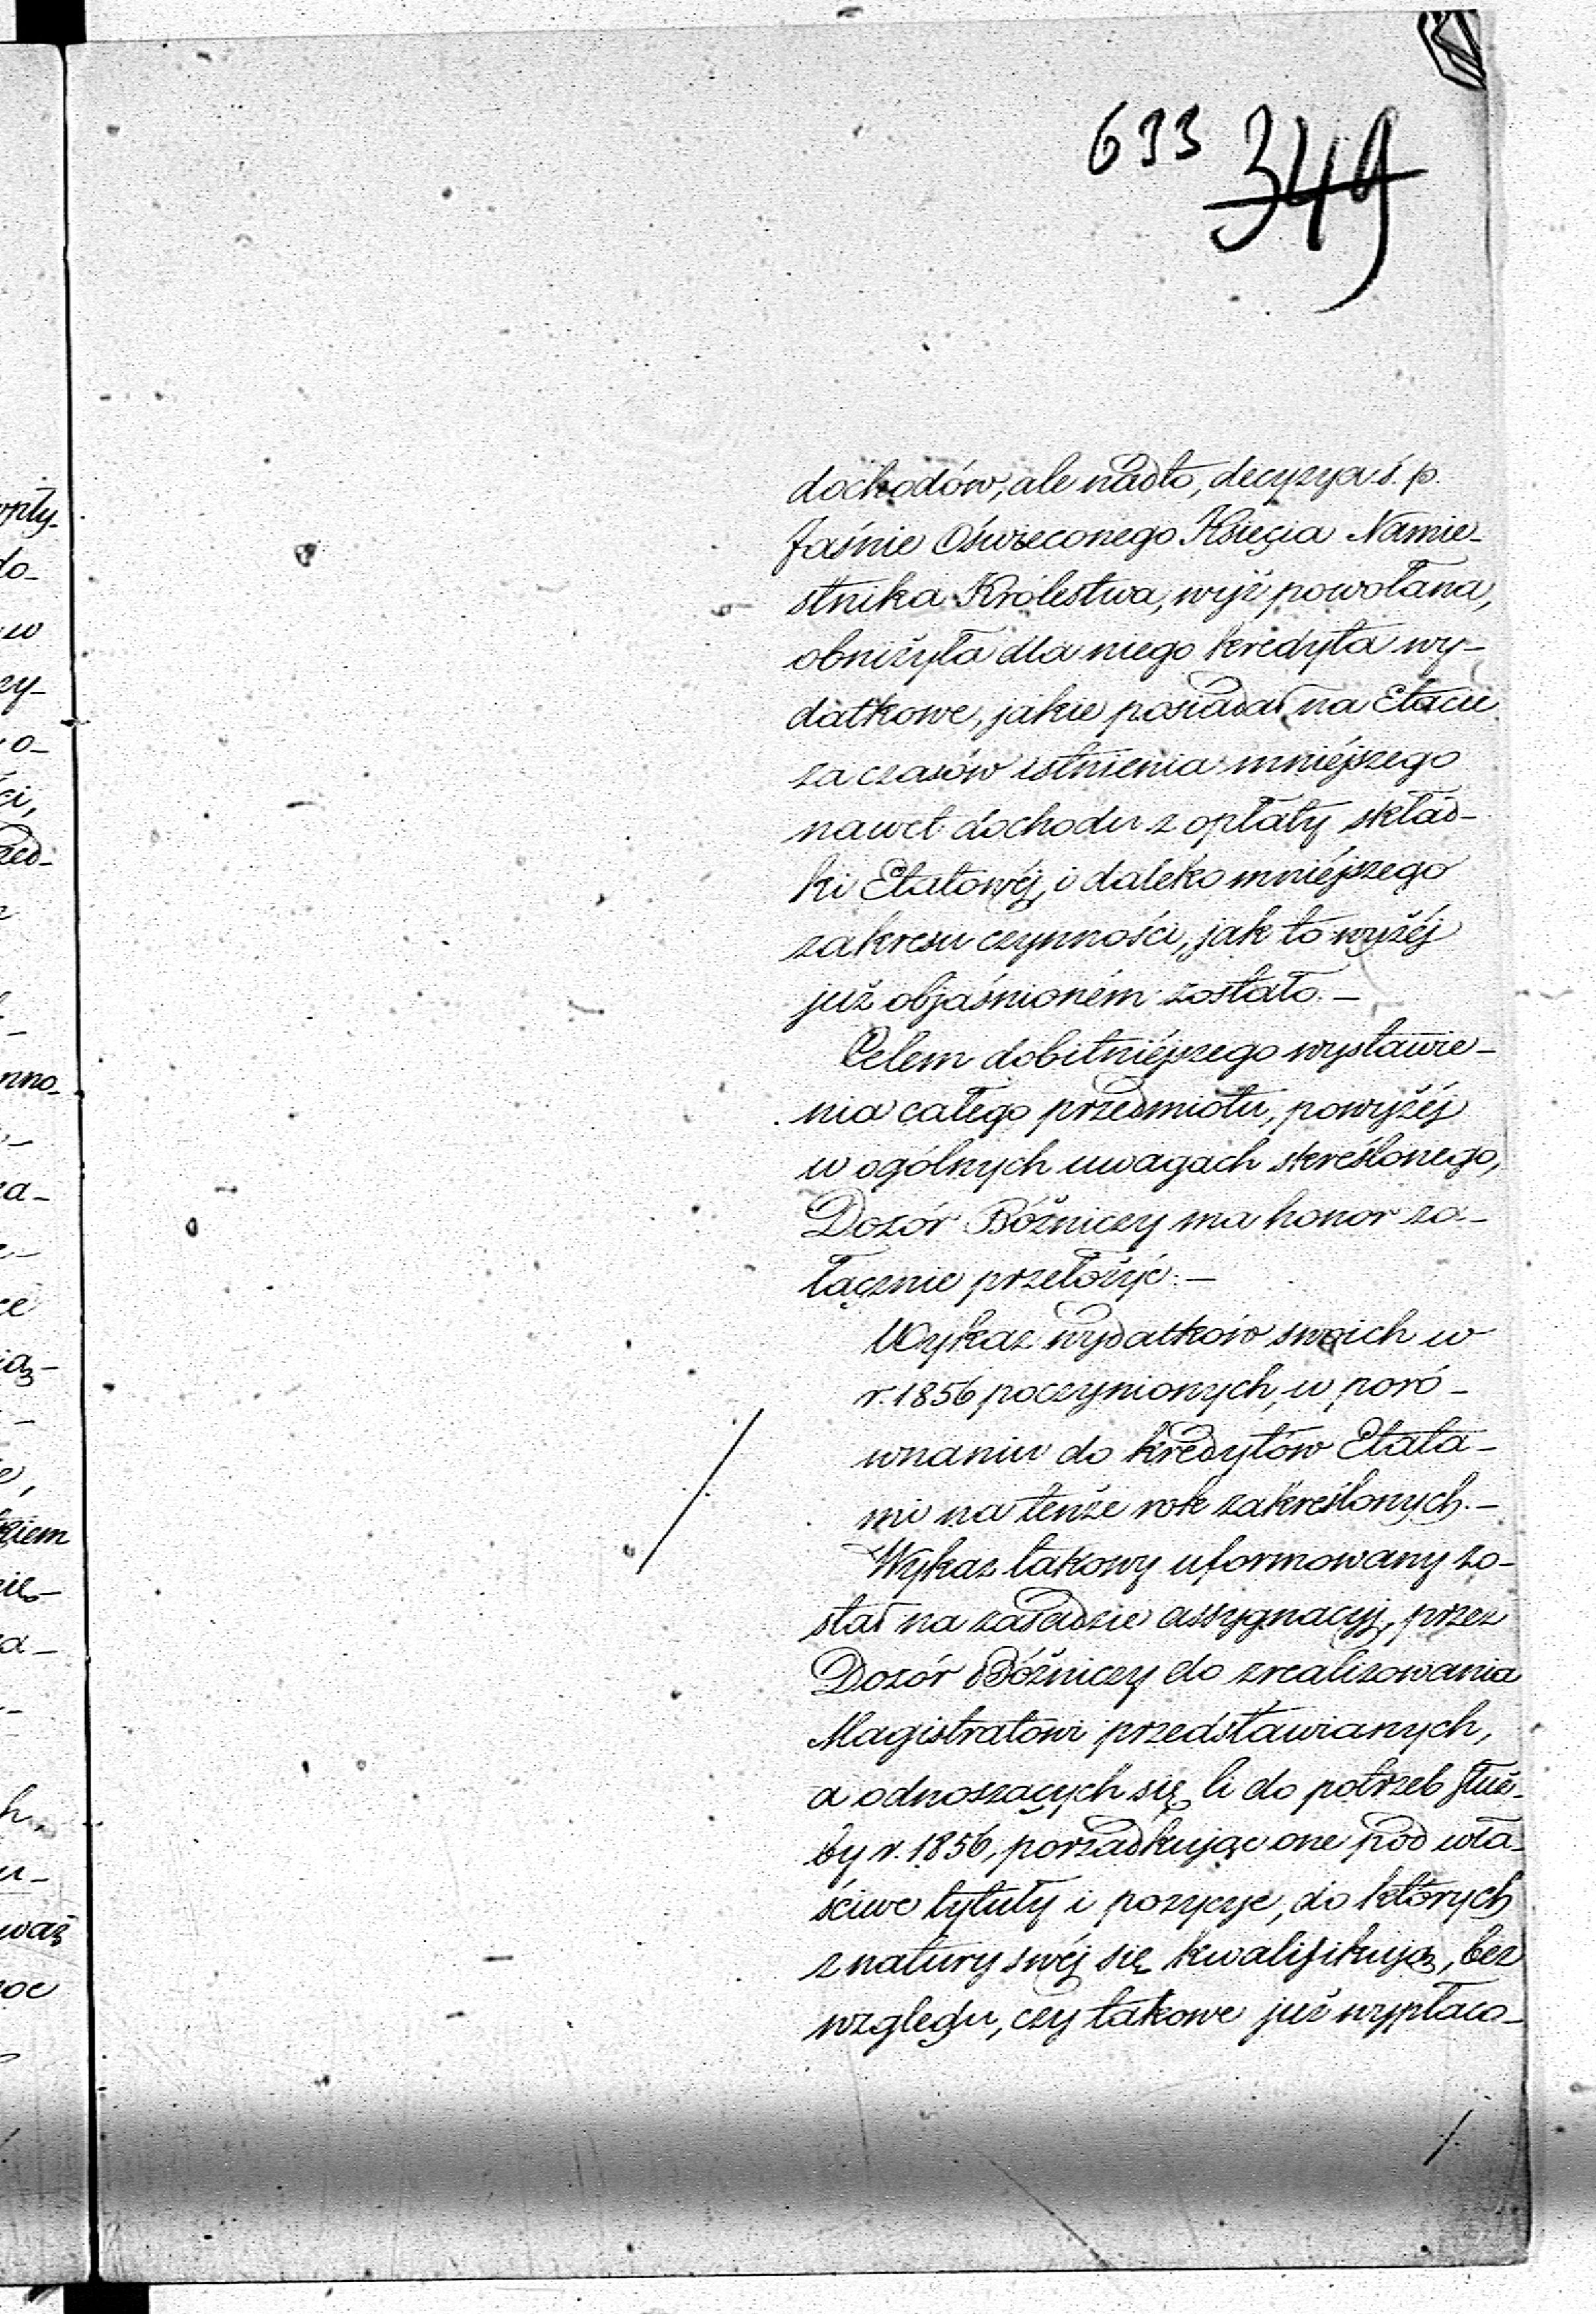 633 349
dochodów, ale nadto, decyzya ś. p.
Jaśnie Oświeconego Księcia Namie-
stnika Królestwa, wyż powołana,
obniżyła dla niego kredyta wy-
datkowe, jakie posiadał na Etacie
za czasów istnienia mniéjszego
nawet dochodu z opłaty skład-
ki Etatowéj, i daleko mniéjszego
zakresu czynności, jak to wyżéj
już objaśnioném zostało. —
Celem dobitniéjszego wystawie-
nia całego przedmiotu, powyżéj
w ogólnych uwagach skreślonego,
Dozór Bóżniczy ma honor za-
łącznie przełożyć: —
Wykaz wydatków swoich w
r. 1856 poczynionych, w poró-
wnaniu do kredytów Etata-
mi na tenże rok zakreślonych. —
Wykaz takowy uformowany zo-
stał na zasadzie assygnacyj, przez
Dozór Bóżniczy do zrealizowania
Magistratowi przedstawianych,
a odnoszących się li do potrzeb służ-
by r. 1856, porządkując one pod wła-
ściwe tytuły i pozycye, do których
z natury swéj się kwalifikują, bez
względu, czy takowe już wypłaco-